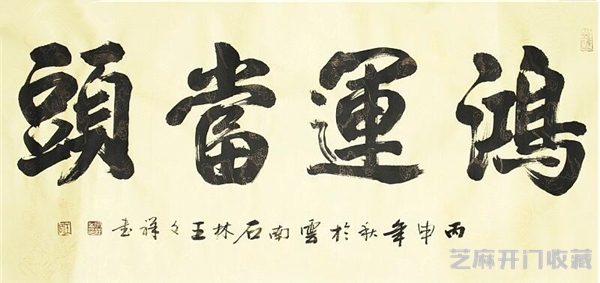 鴻運當頭
丙申年秋於雲南石林王祥书
芝麻开门收藏